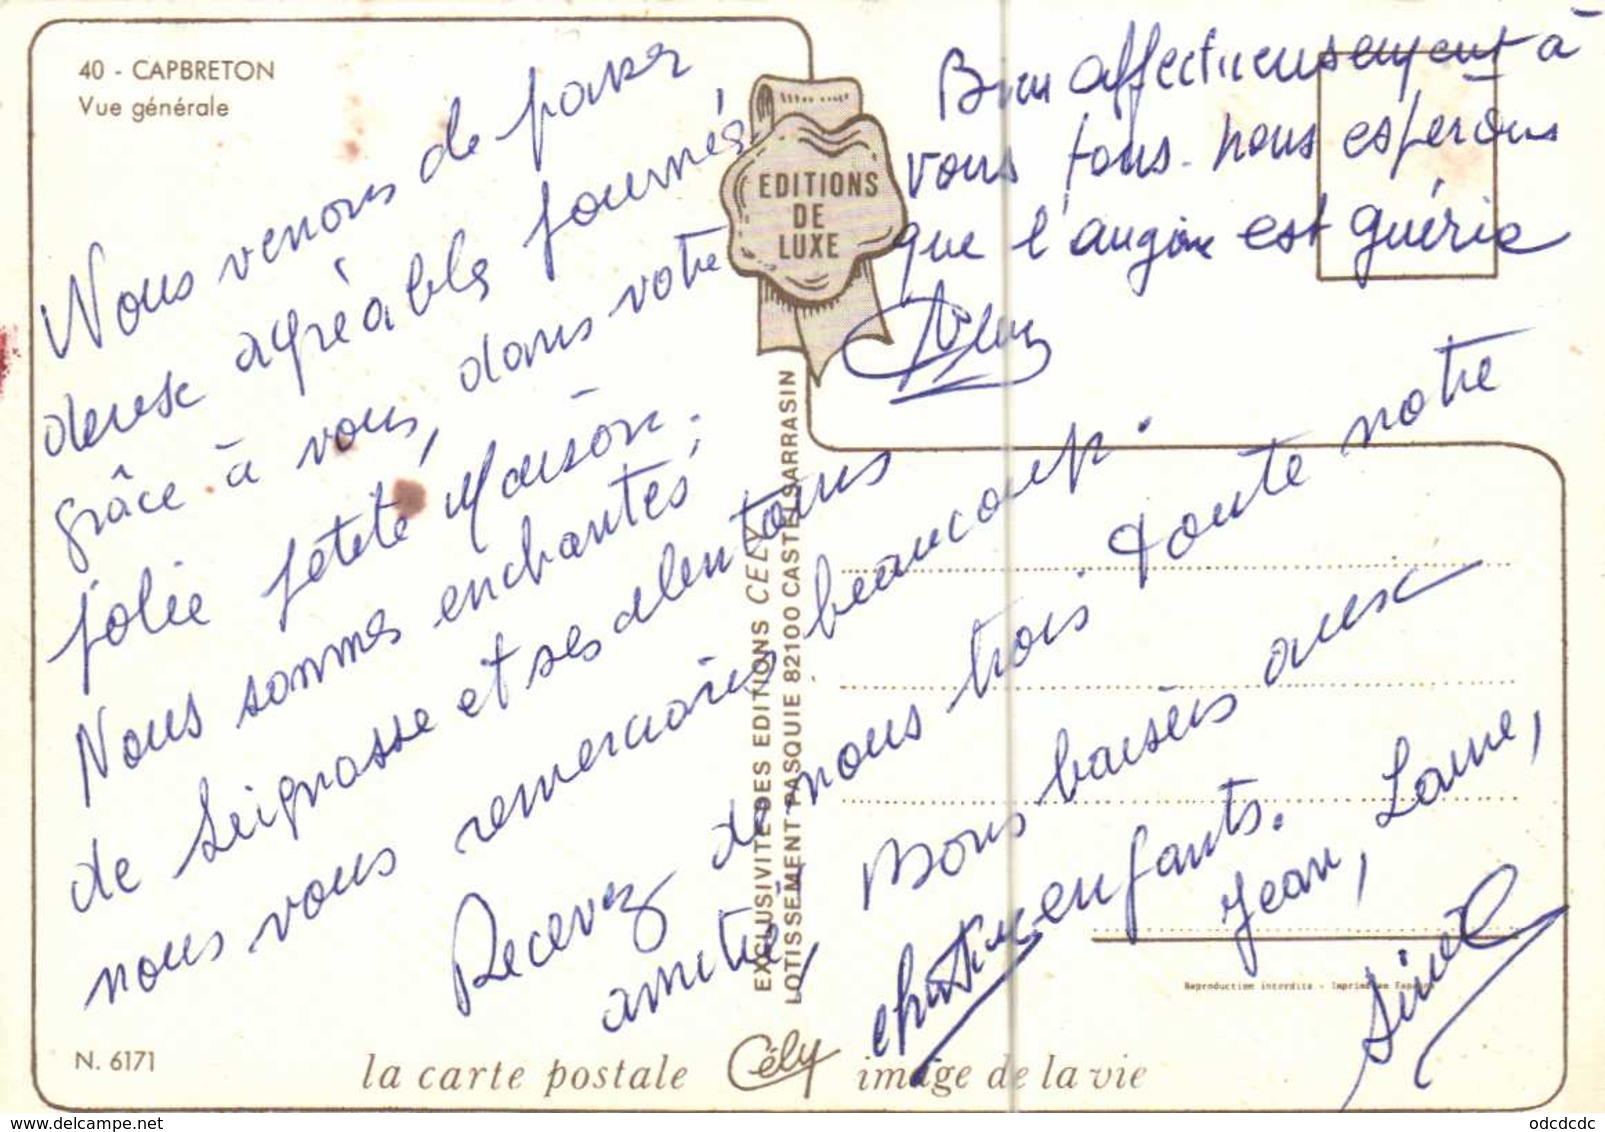 40 - CAPBRETON
Vue générale
Nous venons de passer
deux agréables journées
grâce à vous, dans votre
jolie petite Maison.
Nous sommes enchantés
de Seignosse et ses alentours
nous vous remercions beaucoup.
Recevez de nous trois toute notre
amitié, Bons baisers aux
enfants.
Jean, Laure,
Christine
Bien affectueusement à
vous tous. nous espérons
que l'angine est guérie
EDITIONS
DE
LUXE
EXCLUSIVITE DES EDITIONS CELY
LOTISSEMENT PASQUIE 82100 CASTELSARRASIN
Reproduction interdite - Imprimé en Espagne
N. 6171
la carte postale Cély image de la vie
www.delcampe.net
odcdcdc